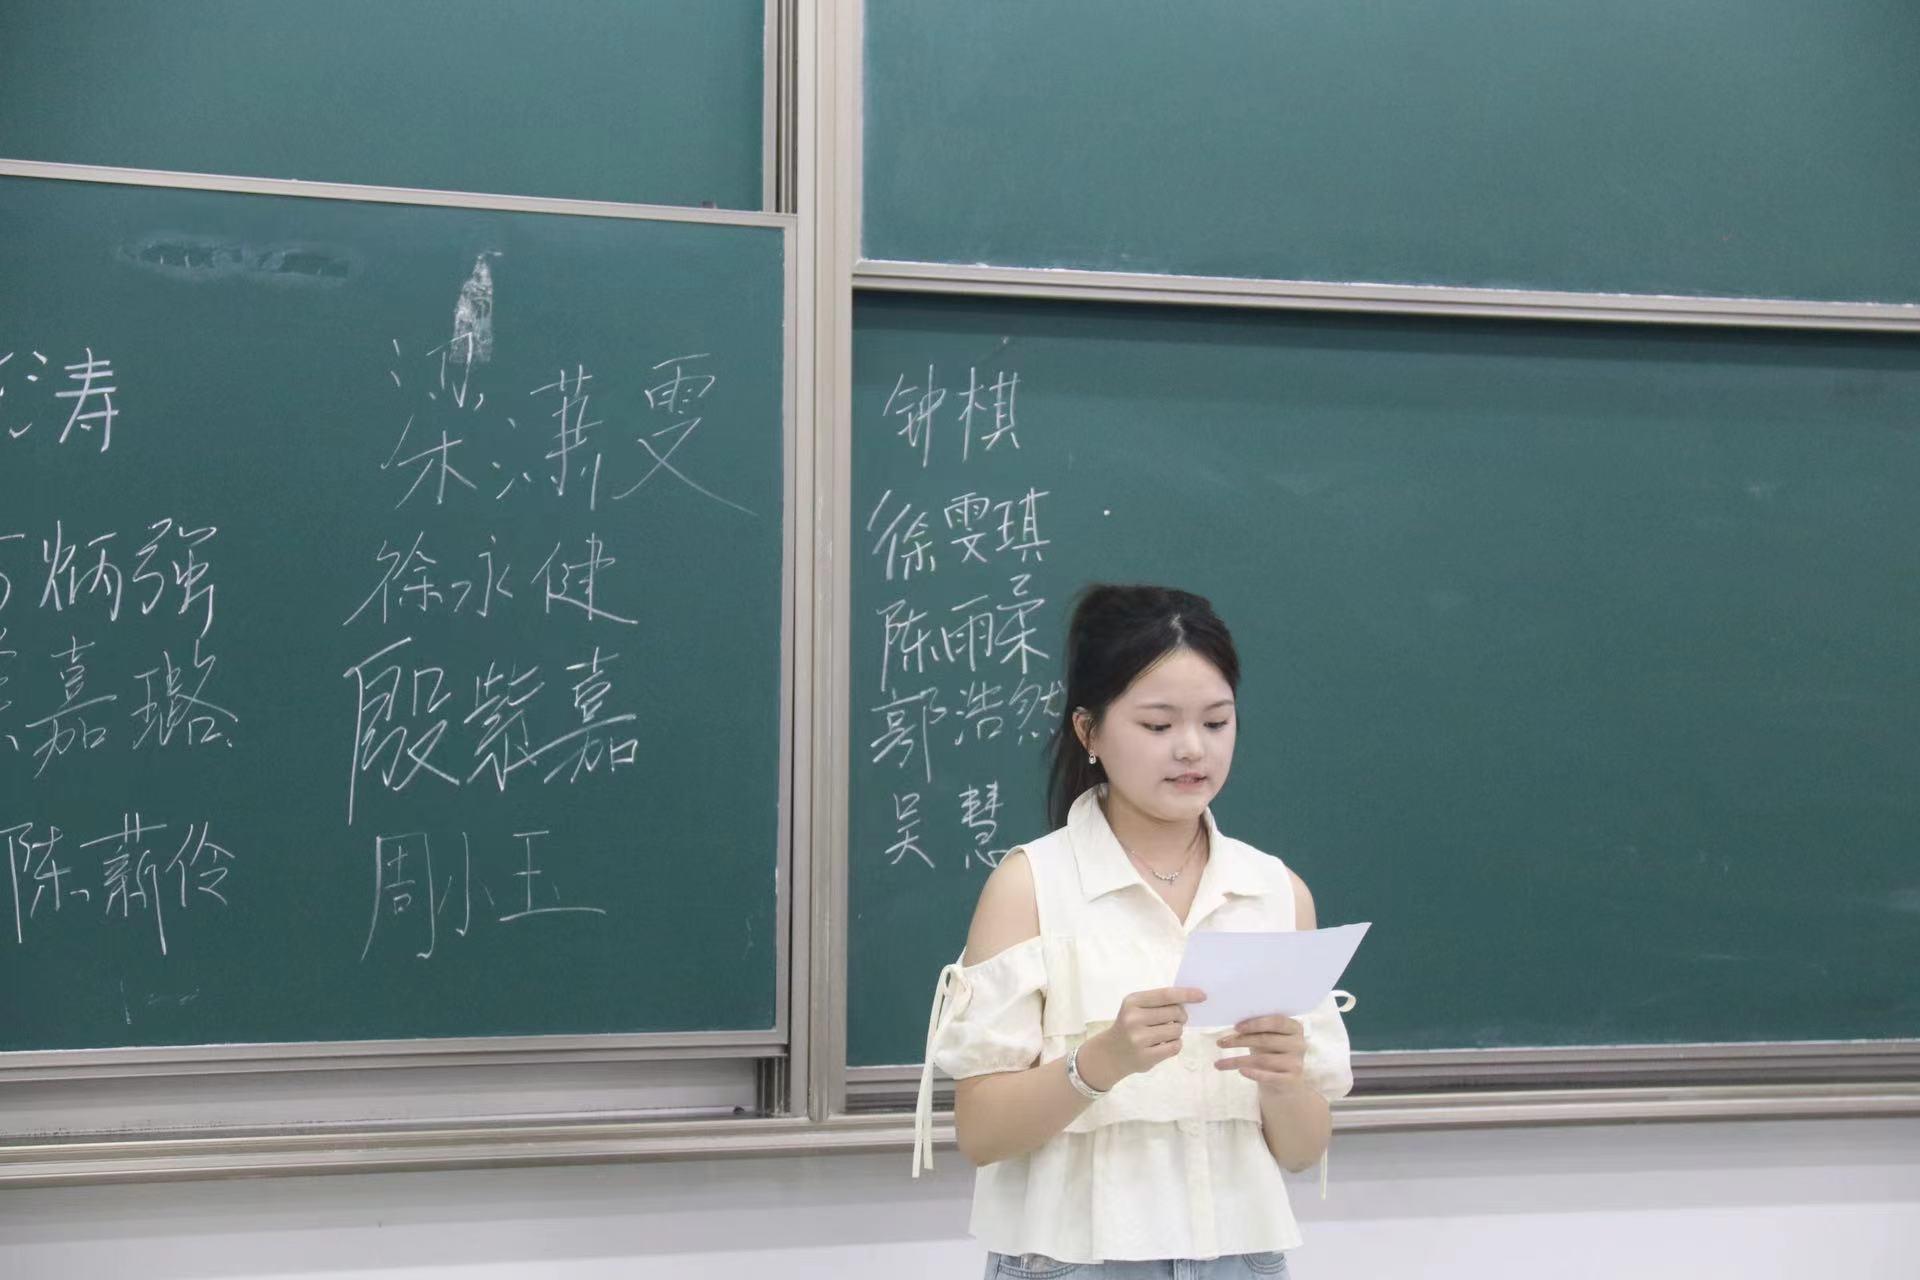 涛
梁潇雯
炳強
徐永健
嘉璐
殷紫嘉
陈薪伶
周小玉
钟棋
徐雯琪
陈雨柔
郭浩然
吴慧